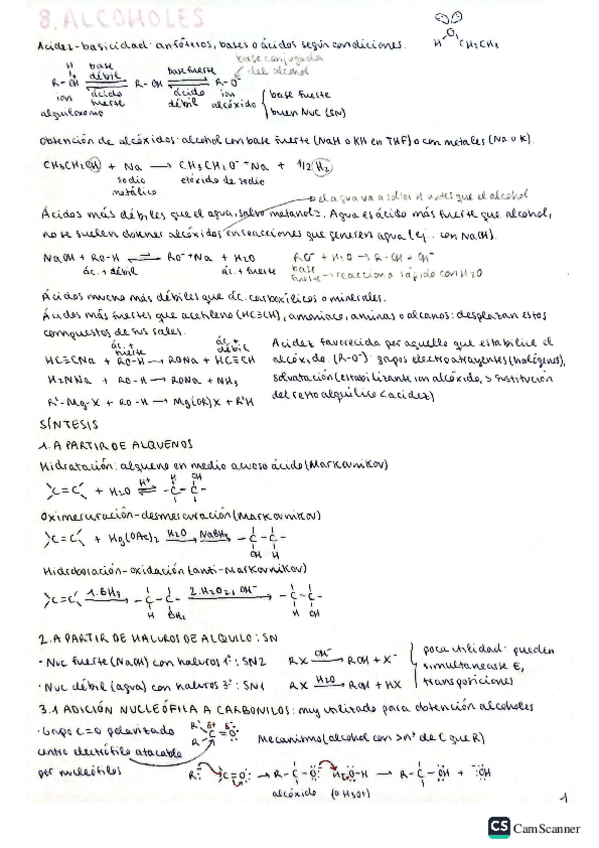 8. ALCOHOLES
Acidez-basicidad: anfóteros, bases o ácidos según condiciones.
H O CH2CH3
base conjugada
del alcohol
H base débil base fuerte
R-OH ⇌ R-OH ⇌ R-O⁻ { base fuerte
ion ácido fuerte ácido débil ion alcóxido buen Nuc (SN)
alquiloxonio
Obtención de alcóxidos: alcohol con base fuerte (NaH o KH en THF) o con metales (Na o K).
CH3CH2OH + Na → CH3CH2O⁻ ⁺Na + 1/2 H2
sodio etóxido de sodio
metálico
el agua va a soltar H antes que el alcohol
Ácidos más débiles que el agua, salvo metanol. Agua es ácido más fuerte que alcohol,
no se suelen obtener alcóxidos en reacciones que generen agua (ej. con NaOH).
NaOH + RO-H ⇌ RO⁻⁺Na + H2O RO⁻ + H2O → R-OH + OH⁻
ác. + débil ác. + fuerte base fuerte → reacciona rápido con H2O
Ácidos mucho más débiles que ác. carboxílicos o minerales.
Ácidos más fuertes que acetileno (HC≡CH), amoniaco, aminas o alcanos: desplazan estos
compuestos de sus sales.
ác. + fuerte ác. + débil
HC≡CNa + RO-H → RONa + HC≡CH
H2NNa + RO-H → RONa + NH3
R'-Mg-X + RO-H → Mg(OR)X + R'H
Acidez favorecida por aquello que estabilice el
alcóxido (R-O⁻): grupos electroatrayentes (halógenos),
solvatación (estabilizante ion alcóxido, > sustitución
del resto alquílico < acidez)
SÍNTESIS
1. A PARTIR DE ALQUENOS
Hidratación: alqueno en medio acuoso ácido (Markovnikov)
C=C + H2O ⇌ H⁺ -C-C- H OH
Oximercuración-desmercuración (Markovnikov)
C=C + Hg(OAc)2 H2O → NaBH4 → -C-C- OH H
Hidroboración-oxidación (anti-Markovnikov)
C=C 1. BH3 → -C-C- H BH2 2. H2O2, OH⁻ → -C-C- H OH
2. A PARTIR DE HALUROS DE ALQUILO: SN
· Nuc fuerte (NaOH) con haluros 1º: SN2 RX OH⁻ → ROH + X⁻
· Nuc débil (agua) con haluros 3º: SN1 RX H2O → ROH + HX
poca utilidad: pueden
simultanearse E,
transposiciones
3.1 ADICIÓN NUCLEÓFILA A CARBONILOS: muy utilizado para obtención alcoholes
· Grupo C=O polarizado R R C=O δ+ δ-
centro electrófilo atacable Mecanismo (alcohol con > nº de C que R)
por nucleófilos R⁻ C=O → R-C-O⁻ H-O-H → R-C-OH + ⁻OH
alcóxido (o H3O⁺)
1
CS CamScanner